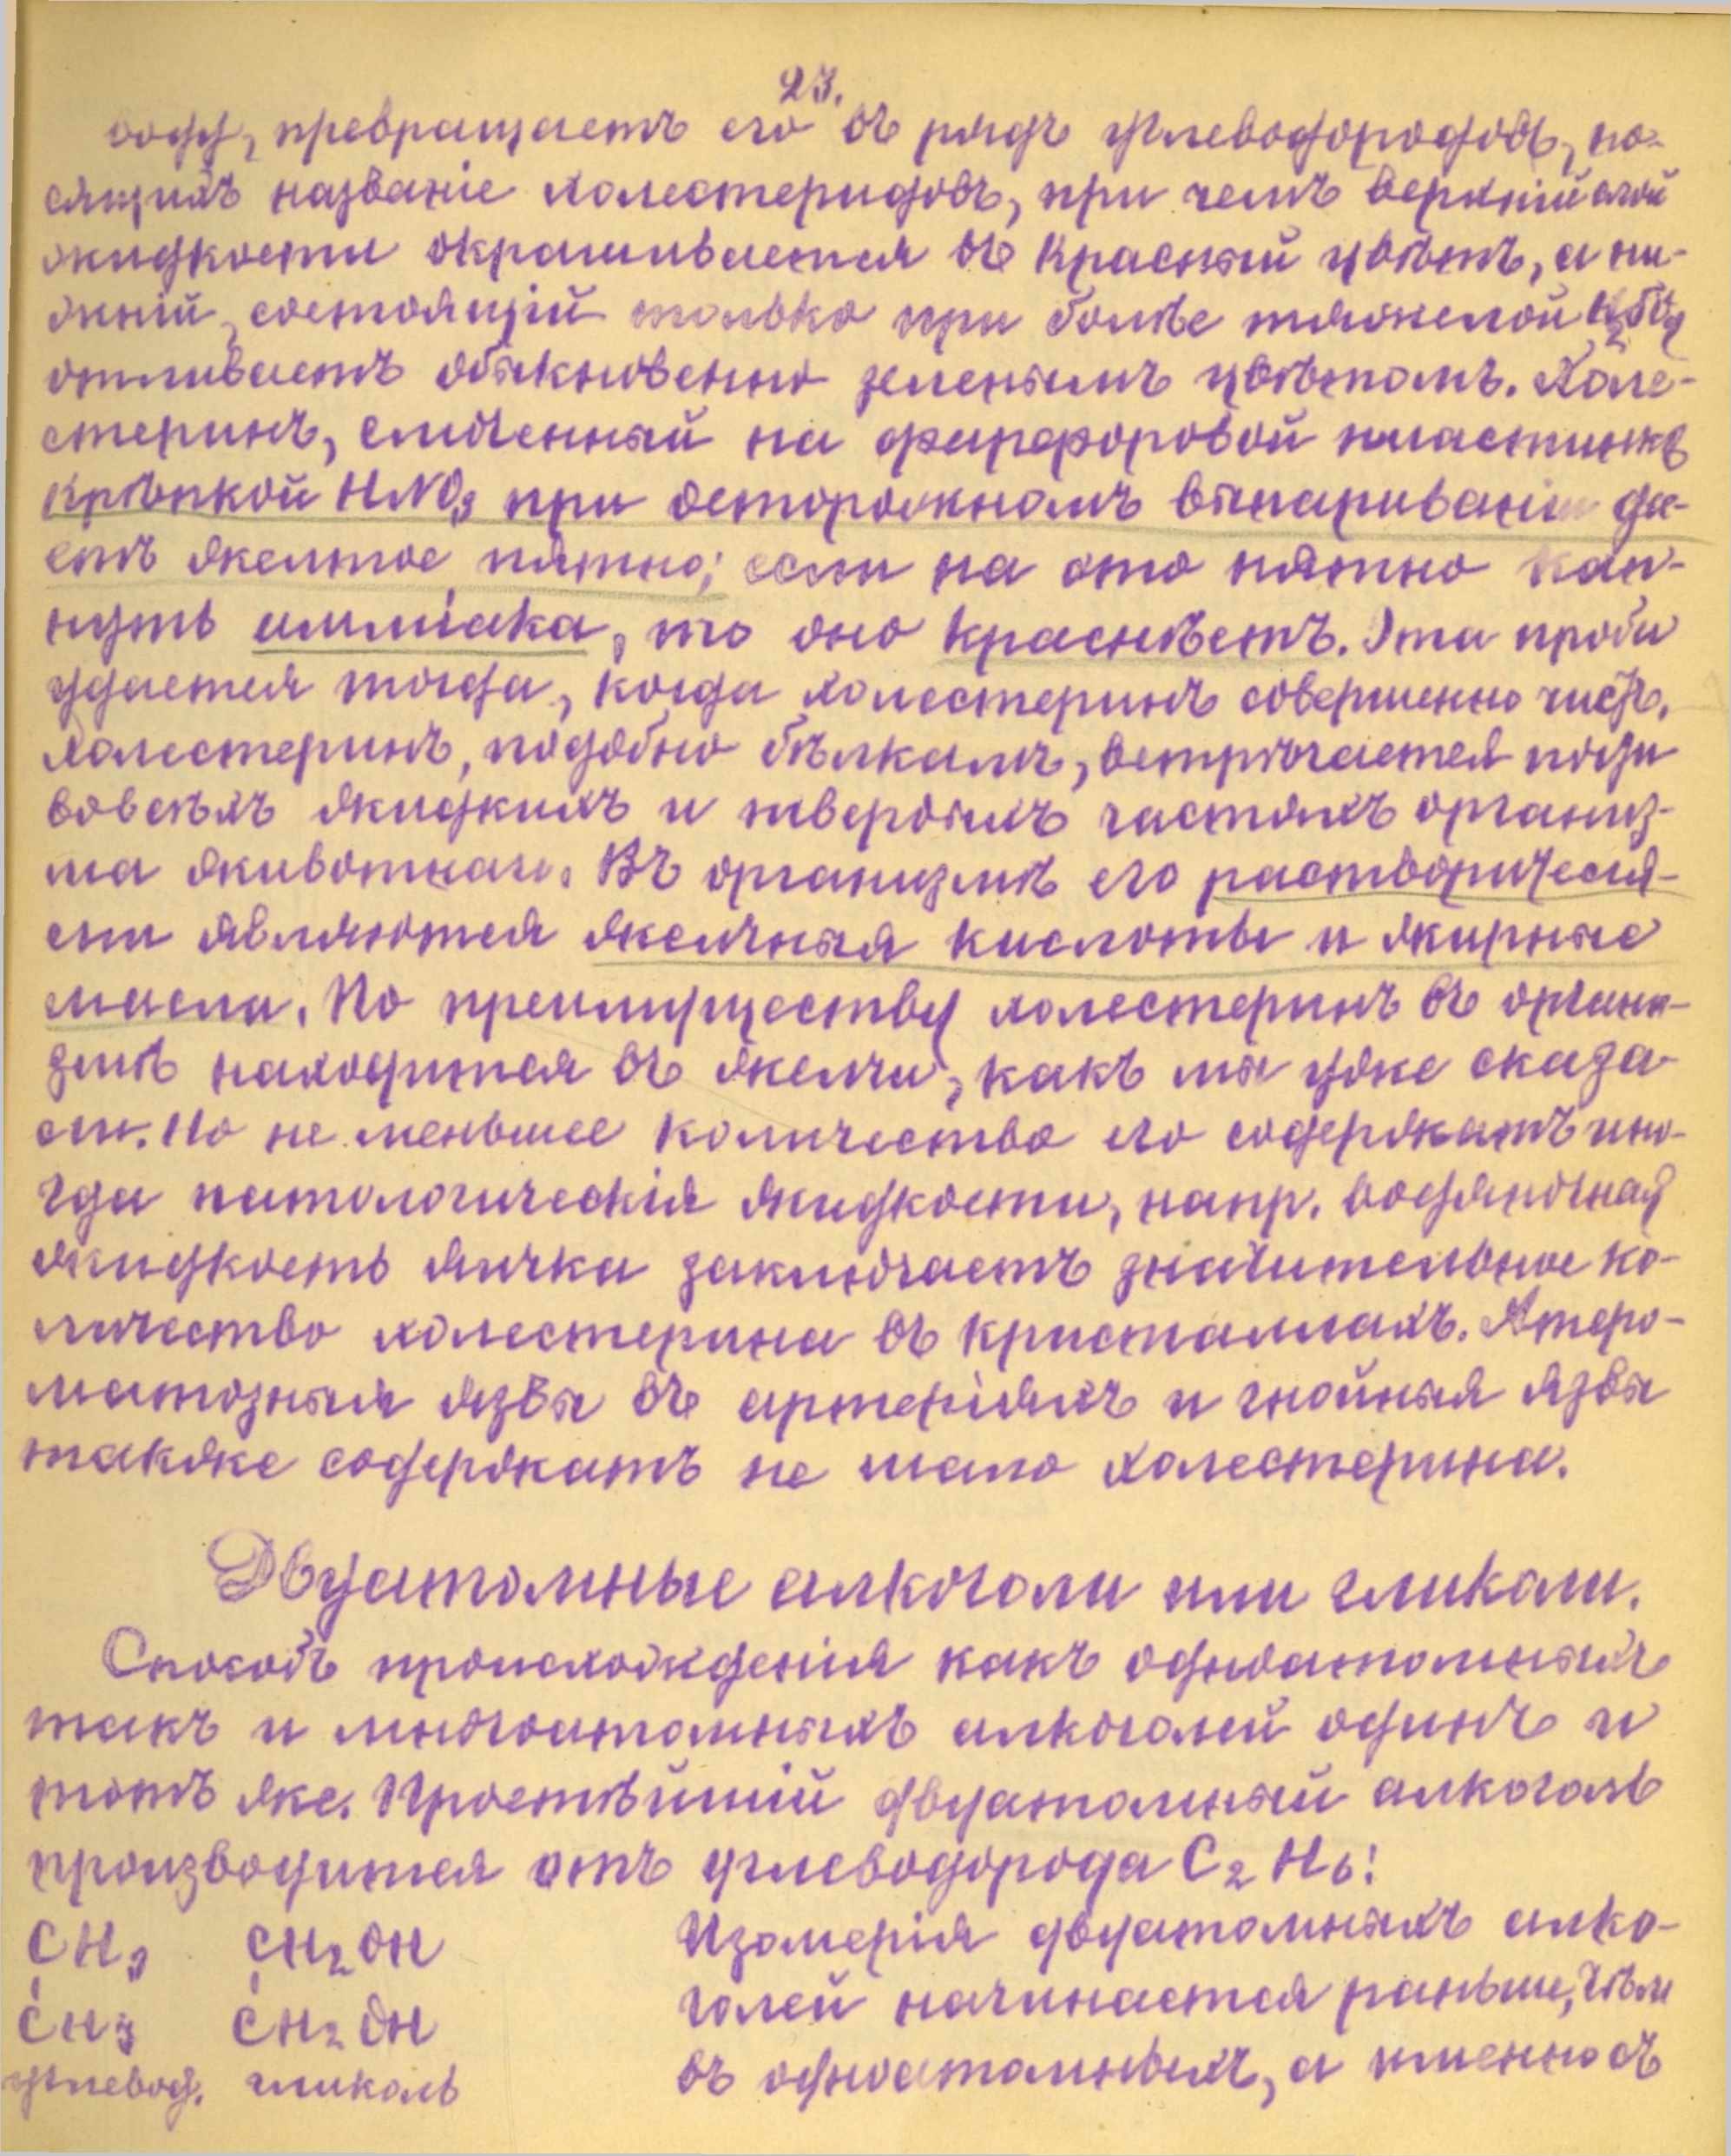 23.
воду, превращаетъ его въ рядъ углеводородовъ, но-
сящихъ названіе холестеридовъ, при чемъ верхній слой
жидкости окрашивается въ красный цвѣтъ, а ни-
жній, состоящій только при болѣе тяжелой H2SO4
отливаетъ обыкновенно зеленымъ цвѣтомъ. Холе-
стеринъ, смоченный на фарфоровой пластинкѣ
крѣпкой HNO3 при осторожномъ выпариваніи да-
етъ желтое пятно; если на это пятно кап-
нуть амміака, то оно краснѣетъ. Эта проба
удается тогда, когда холестеринъ совершенно чистъ.
Холестеринъ, подобно бѣлкамъ, встрѣчается почти
во всѣхъ жидкихъ и твердыхъ частяхъ организ-
ма животнаго. Въ организмѣ его растворителя-
ми являются желчныя кислоты и жирные
масла. По преимуществу холестеринъ въ органи-
змѣ находится въ желчи, какъ мы уже сказа-
ли. Но не меньшее количество его содержатъ ино-
гда патологическія жидкости, напр. водяночная
жидкость яичка заключаетъ значительное ко-
личество холестерина въ кристаллахъ. Атеро-
матозныя язвы въ артеріяхъ и гнойныя язвы
также содержатъ не мало холестерина.
Двуатомные алкоголи или гликоли.
Способъ происхожденія какъ одноатомныхъ
такъ и многоатомныхъ алкоголей одинъ и
тотъ же. Простѣйшій двуатомный алкоголь
производится отъ углеводорода C2H6:
CH3 CH2OH Изомерія двуатомныхъ алко-
CH3 CH2OH голей начинается раньше, чѣмъ
углевод. гликоль въ одноатомныхъ, а именно съ